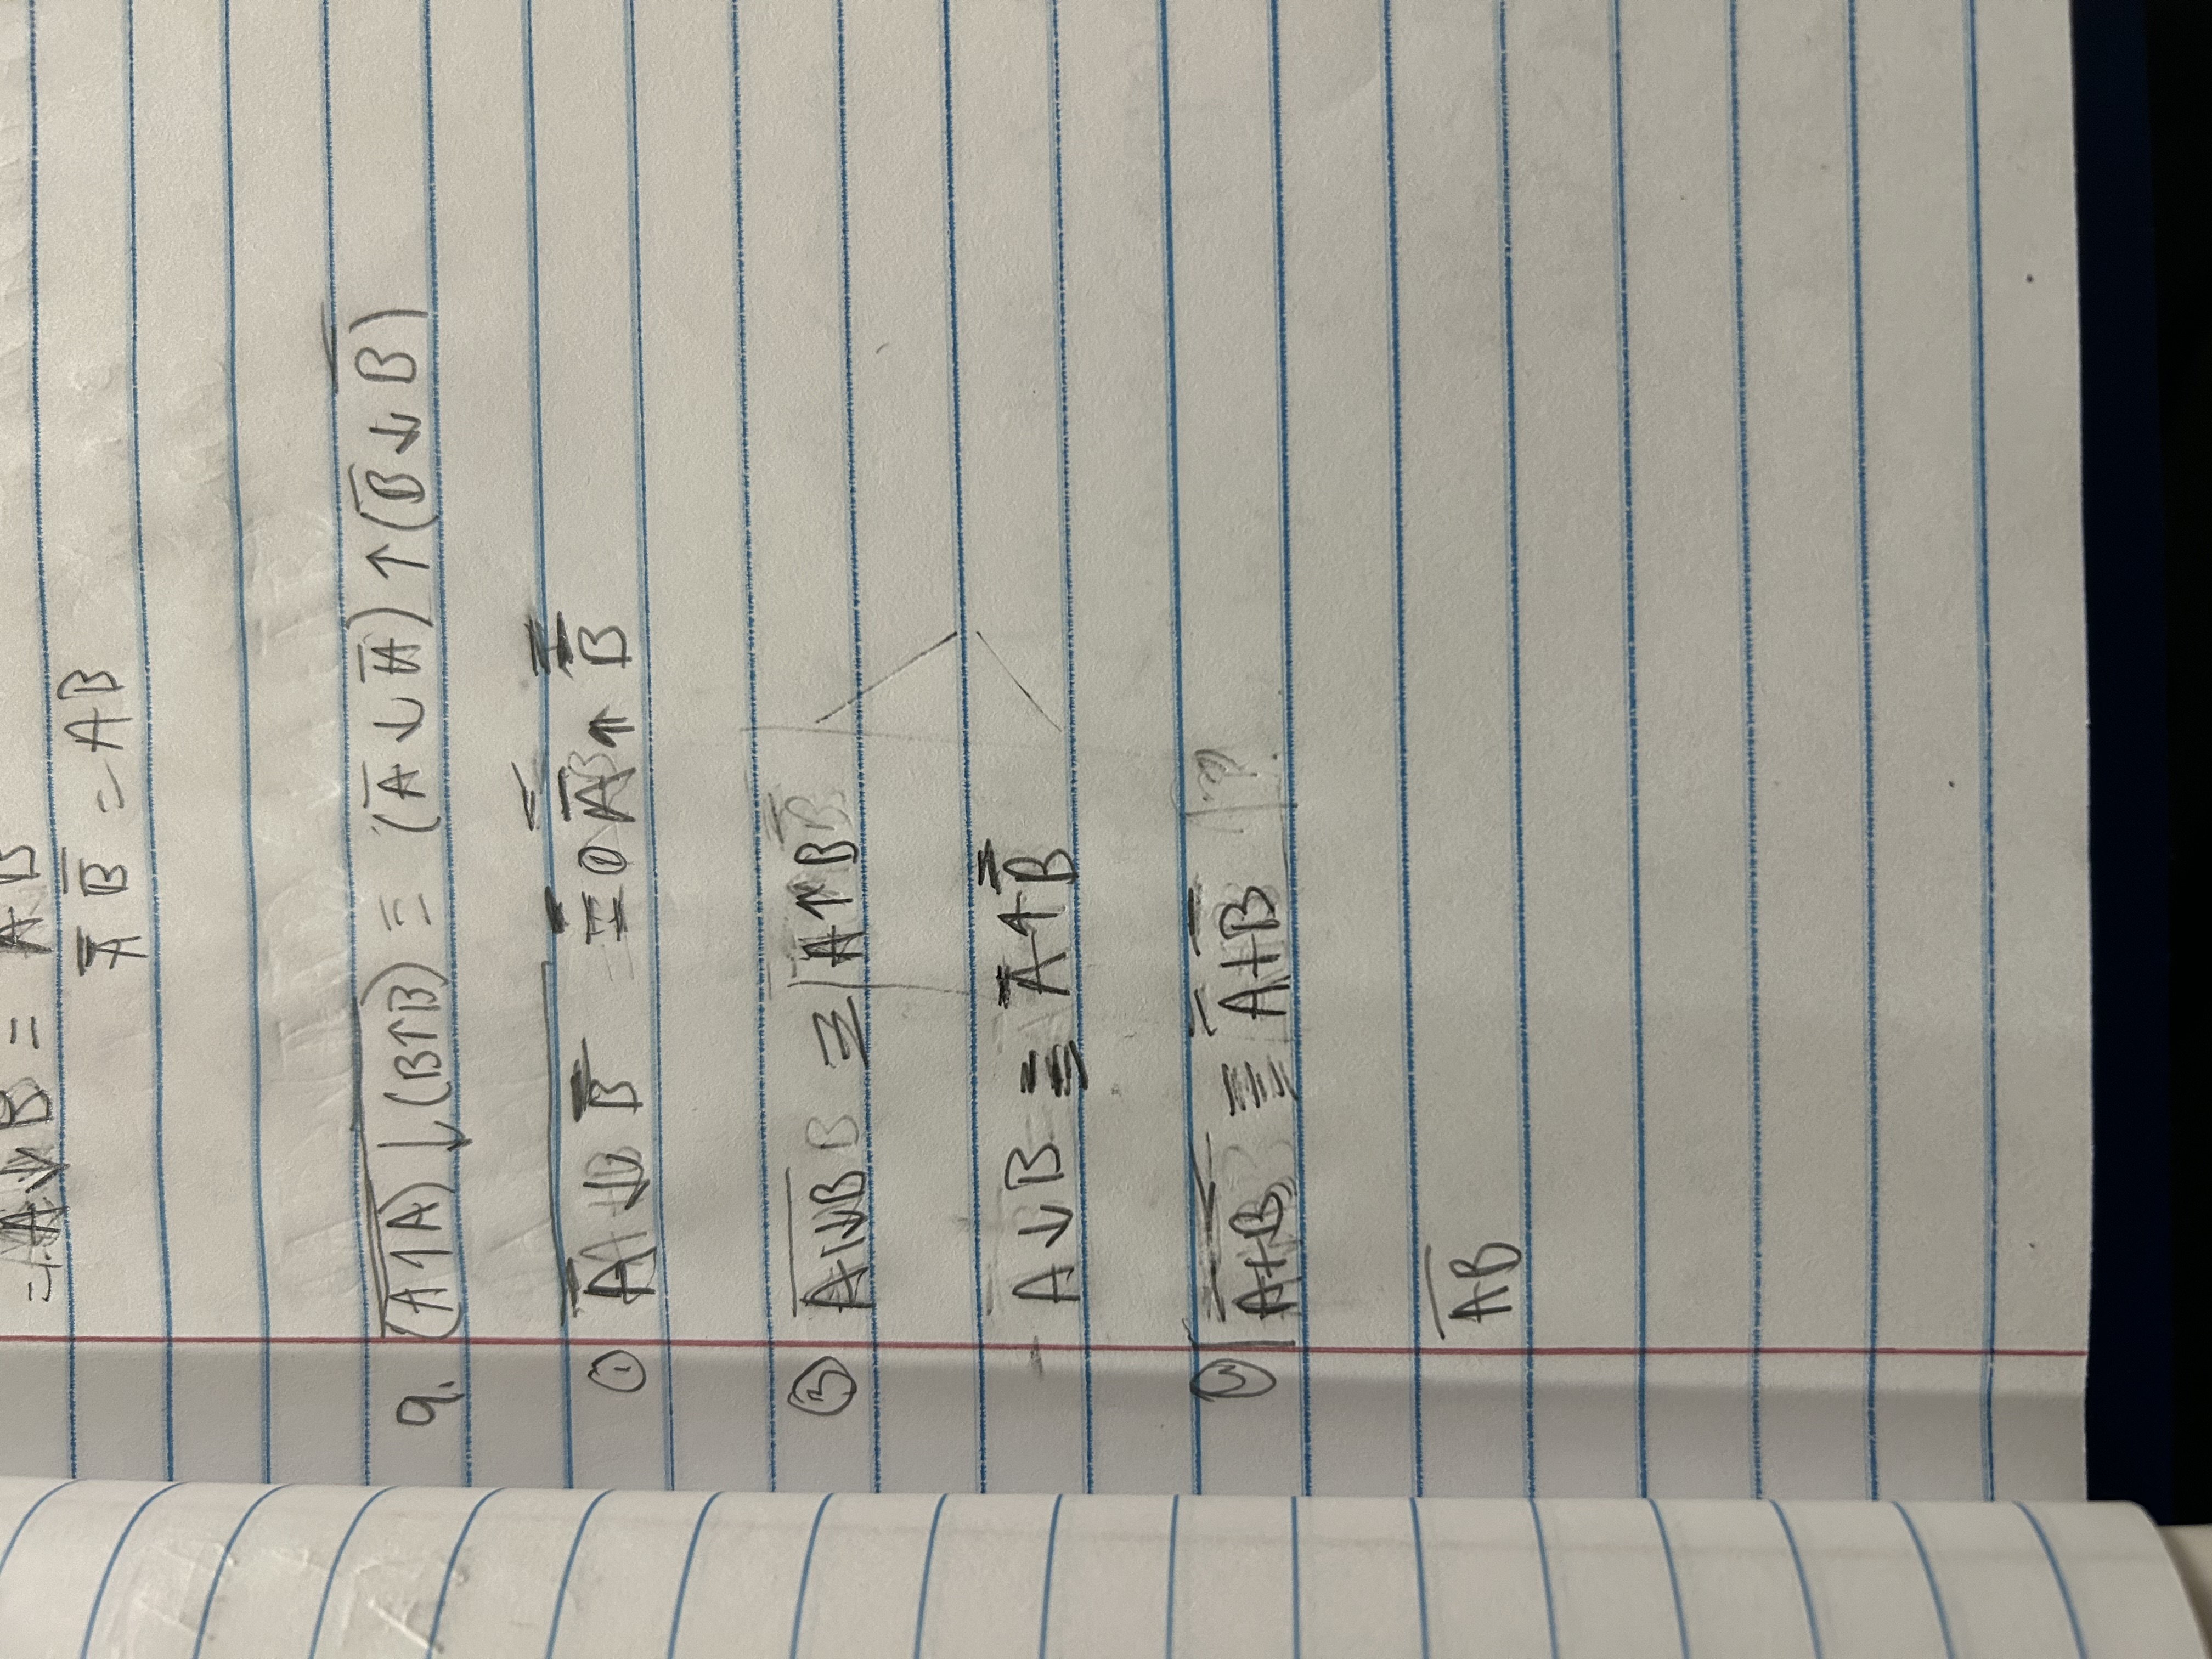 = A↓B = A B
A̿ B̿ = AB
9. \overline{(A↑A)↓(B↑B)} ≡ (A̅ ↓ A̅) ↑ (B̅ ↓ B̅)
① \overline{A̅ ↓ B̅} ≡ ① A̿ ↑ B̿
③ \overline{A↓B} ≡ A↑B
A↓B ≡ A̿ ↑ B̿
④ \overline{A+B} ≡ A̅+B̅ ?
\overline{AB}